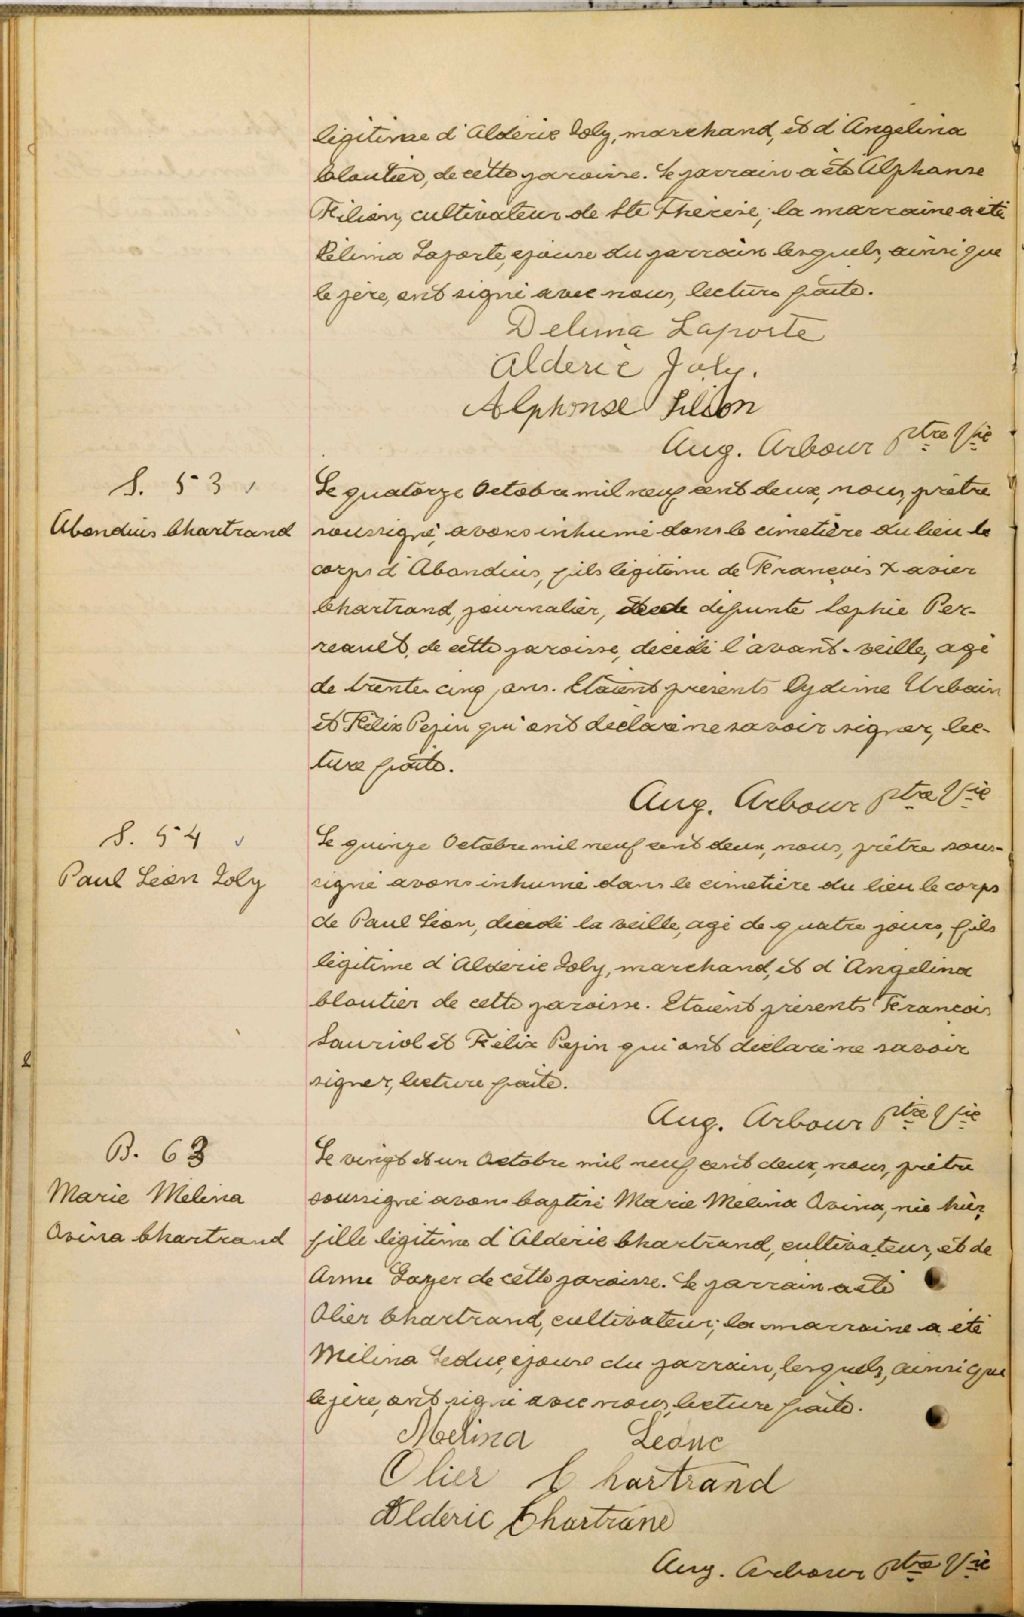 légitime d'Alderic Joly, marchand, et d'Angelina
Cloutier, de cette paroisse. Le parrain a été Alphonse
Filion, cultivateur de Ste Thérèse; la marraine a été
Délima Laporte, épouse du parrain lesquels, ainsi que
le père, ont signé avec nous, lecture faite.
Delima Laporte
Alderic Joly.
Alphonse Filion
Aug. Arbour ptre Vic
S. 53
Abondius Chartrand
Le quatorze Octobre mil neuf cent deux, nous, prêtre
soussigné, avons inhumé dans le cimetière du lieu le
corps d'Abondius, fils légitime de François Xavier
Chartrand, journalier, et de défunte Sophie Per-
reault, de cette paroisse, décédé l'avant-veille, agé
de trente cinq ans. Etaient présents Oydime Urbain
et Félix Pepin qui ont déclaré ne savoir signer, lec-
ture faite.
Aug. Arbour ptre Vic
S. 54
Paul Léon Joly
Le quinze Octobre mil neuf cent deux, nous, prêtre sous-
signé avons inhumé dans le cimetière du lieu le corps
de Paul Léon, décédé la veille, agé de quatre jours, fils
légitime d'Alderic Joly, marchand, et d'Angelina
Cloutier de cette paroisse. Etaient présents François
Lauriol et Félix Pepin qui ont déclaré ne savoir
signer, lecture faite.
Aug. Arbour ptre Vic
B. 63
Marie Mélina
Ovina Chartrand
Le vingt et un Octobre mil neuf cent deux, nous, prêtre
soussigné avons baptisé Marie Mélina Ovina, née hier,
fille légitime d'Aldéric Chartrand, cultivateur, et de
Anne Gayer de cette paroisse. Le parrain a été
Olier Chartrand, cultivateur; la marraine a été
Mélina Leduc, épouse du parrain, lesquels, ainsi que
le père, ont signé avec nous, lecture faite.
Melina Leduc
Olier Chartrand
Aldéric Chartrand
Aug. Arbour ptre Vic